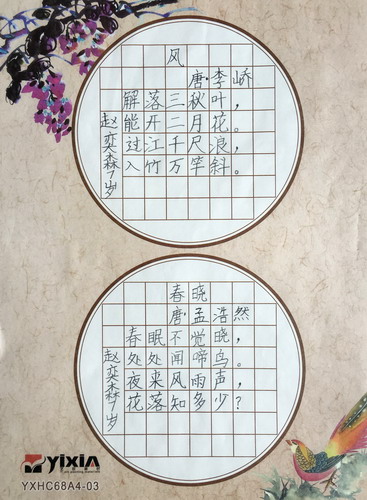 风
唐·李峤
解落三秋叶，
能开二月花。
过江千尺浪，
入竹万竿斜。
赵奕森7岁
春晓
唐·孟浩然
春眠不觉晓，
处处闻啼鸟。
夜来风雨声，
花落知多少？
赵奕森7岁
yixin
YXHC68A4-03